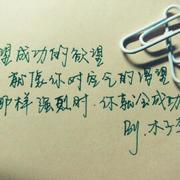 望成功的欲望
就像你对空气的渴望
那样强烈时.你就会成功
木子